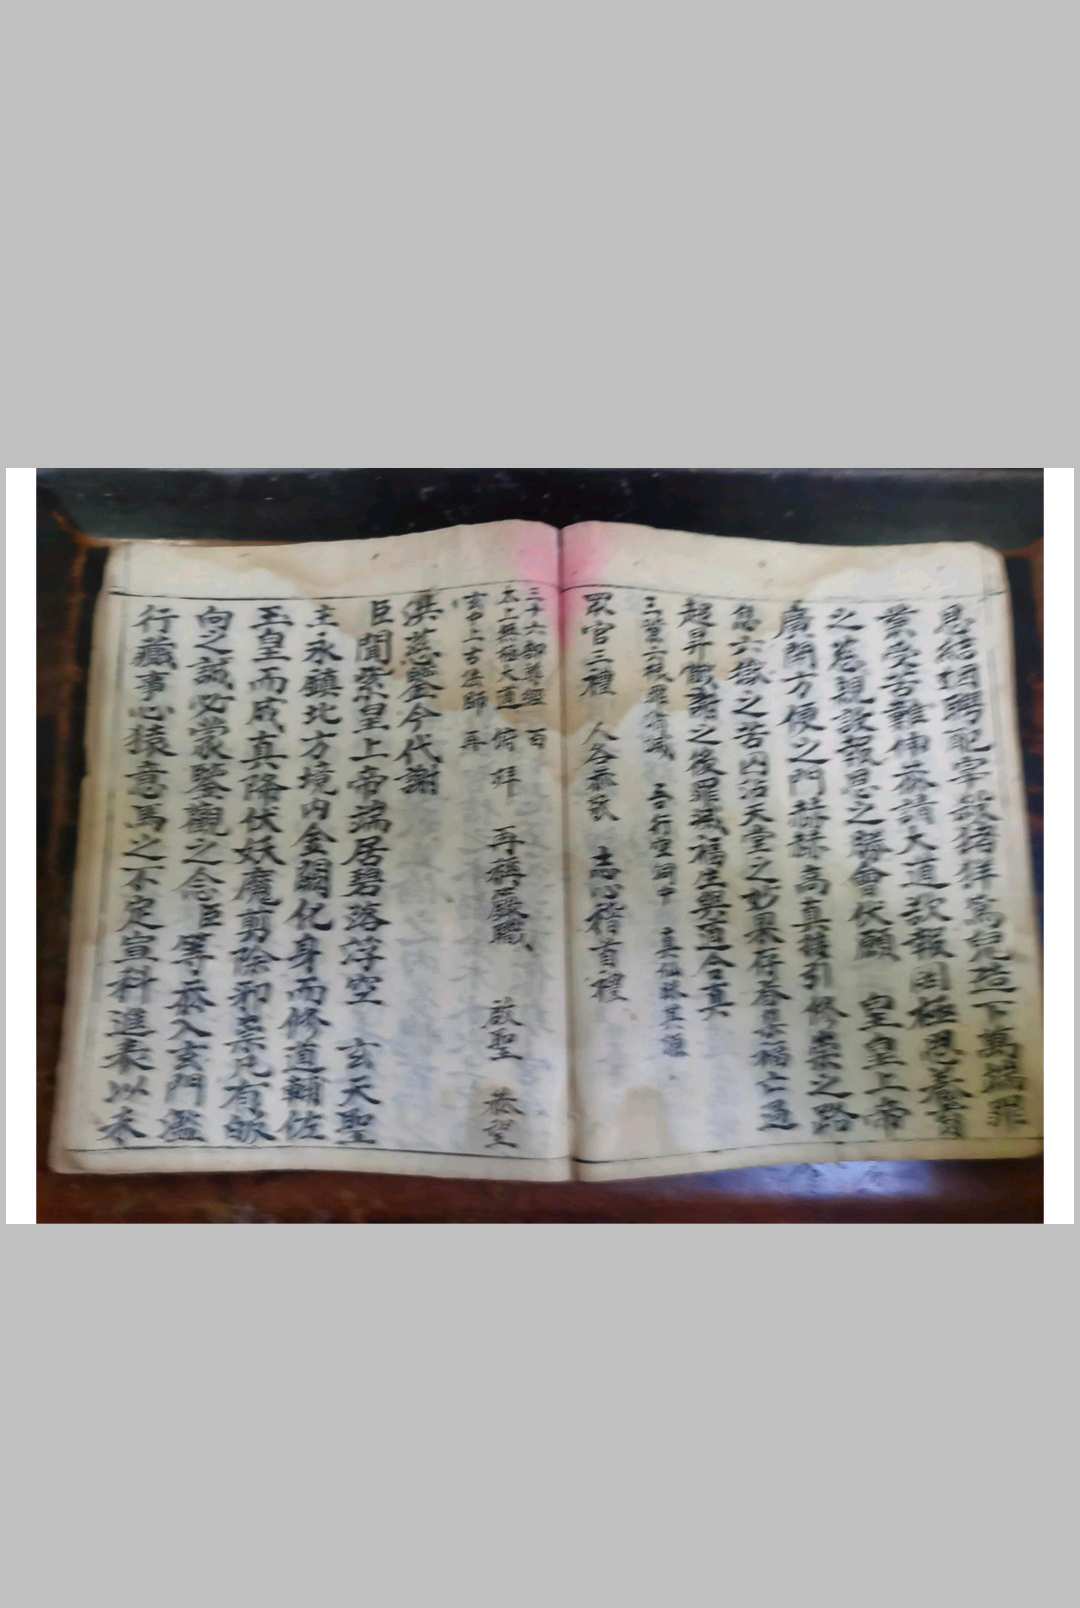 恩結姻娉配宰殺猪羊為兒造下萬端罪
業受苦難伸忝請大道欲報罔極恩養育
之慈親設報恩之勝會伏願 皇皇上帝
廣開方便之門赫赫高真接引修崇之路
息六獄之苦囚沾天堂之妙果存者集福亡過
超昇懺謝之後罪滅福生與道合真
三業六根罪消滅
眾官三禮 人各恭敬 志心稽首禮
三十六部尊經 百
太上無極大道 俯拜 再稱 職 啟聖 恭望
玄中上古法師 再
洪慈鑒今代謝
臣聞紫皇上帝端居碧落浮空 玄天聖
主永鎮北方境內金闕化身而修道輔佐
玉皇而成真降伏妖魔剪除邪祟凡有皈
向之誠必蒙鑒觀之念臣等忝入玄門濫
行藏事心猿意馬之不定宣科進表以未